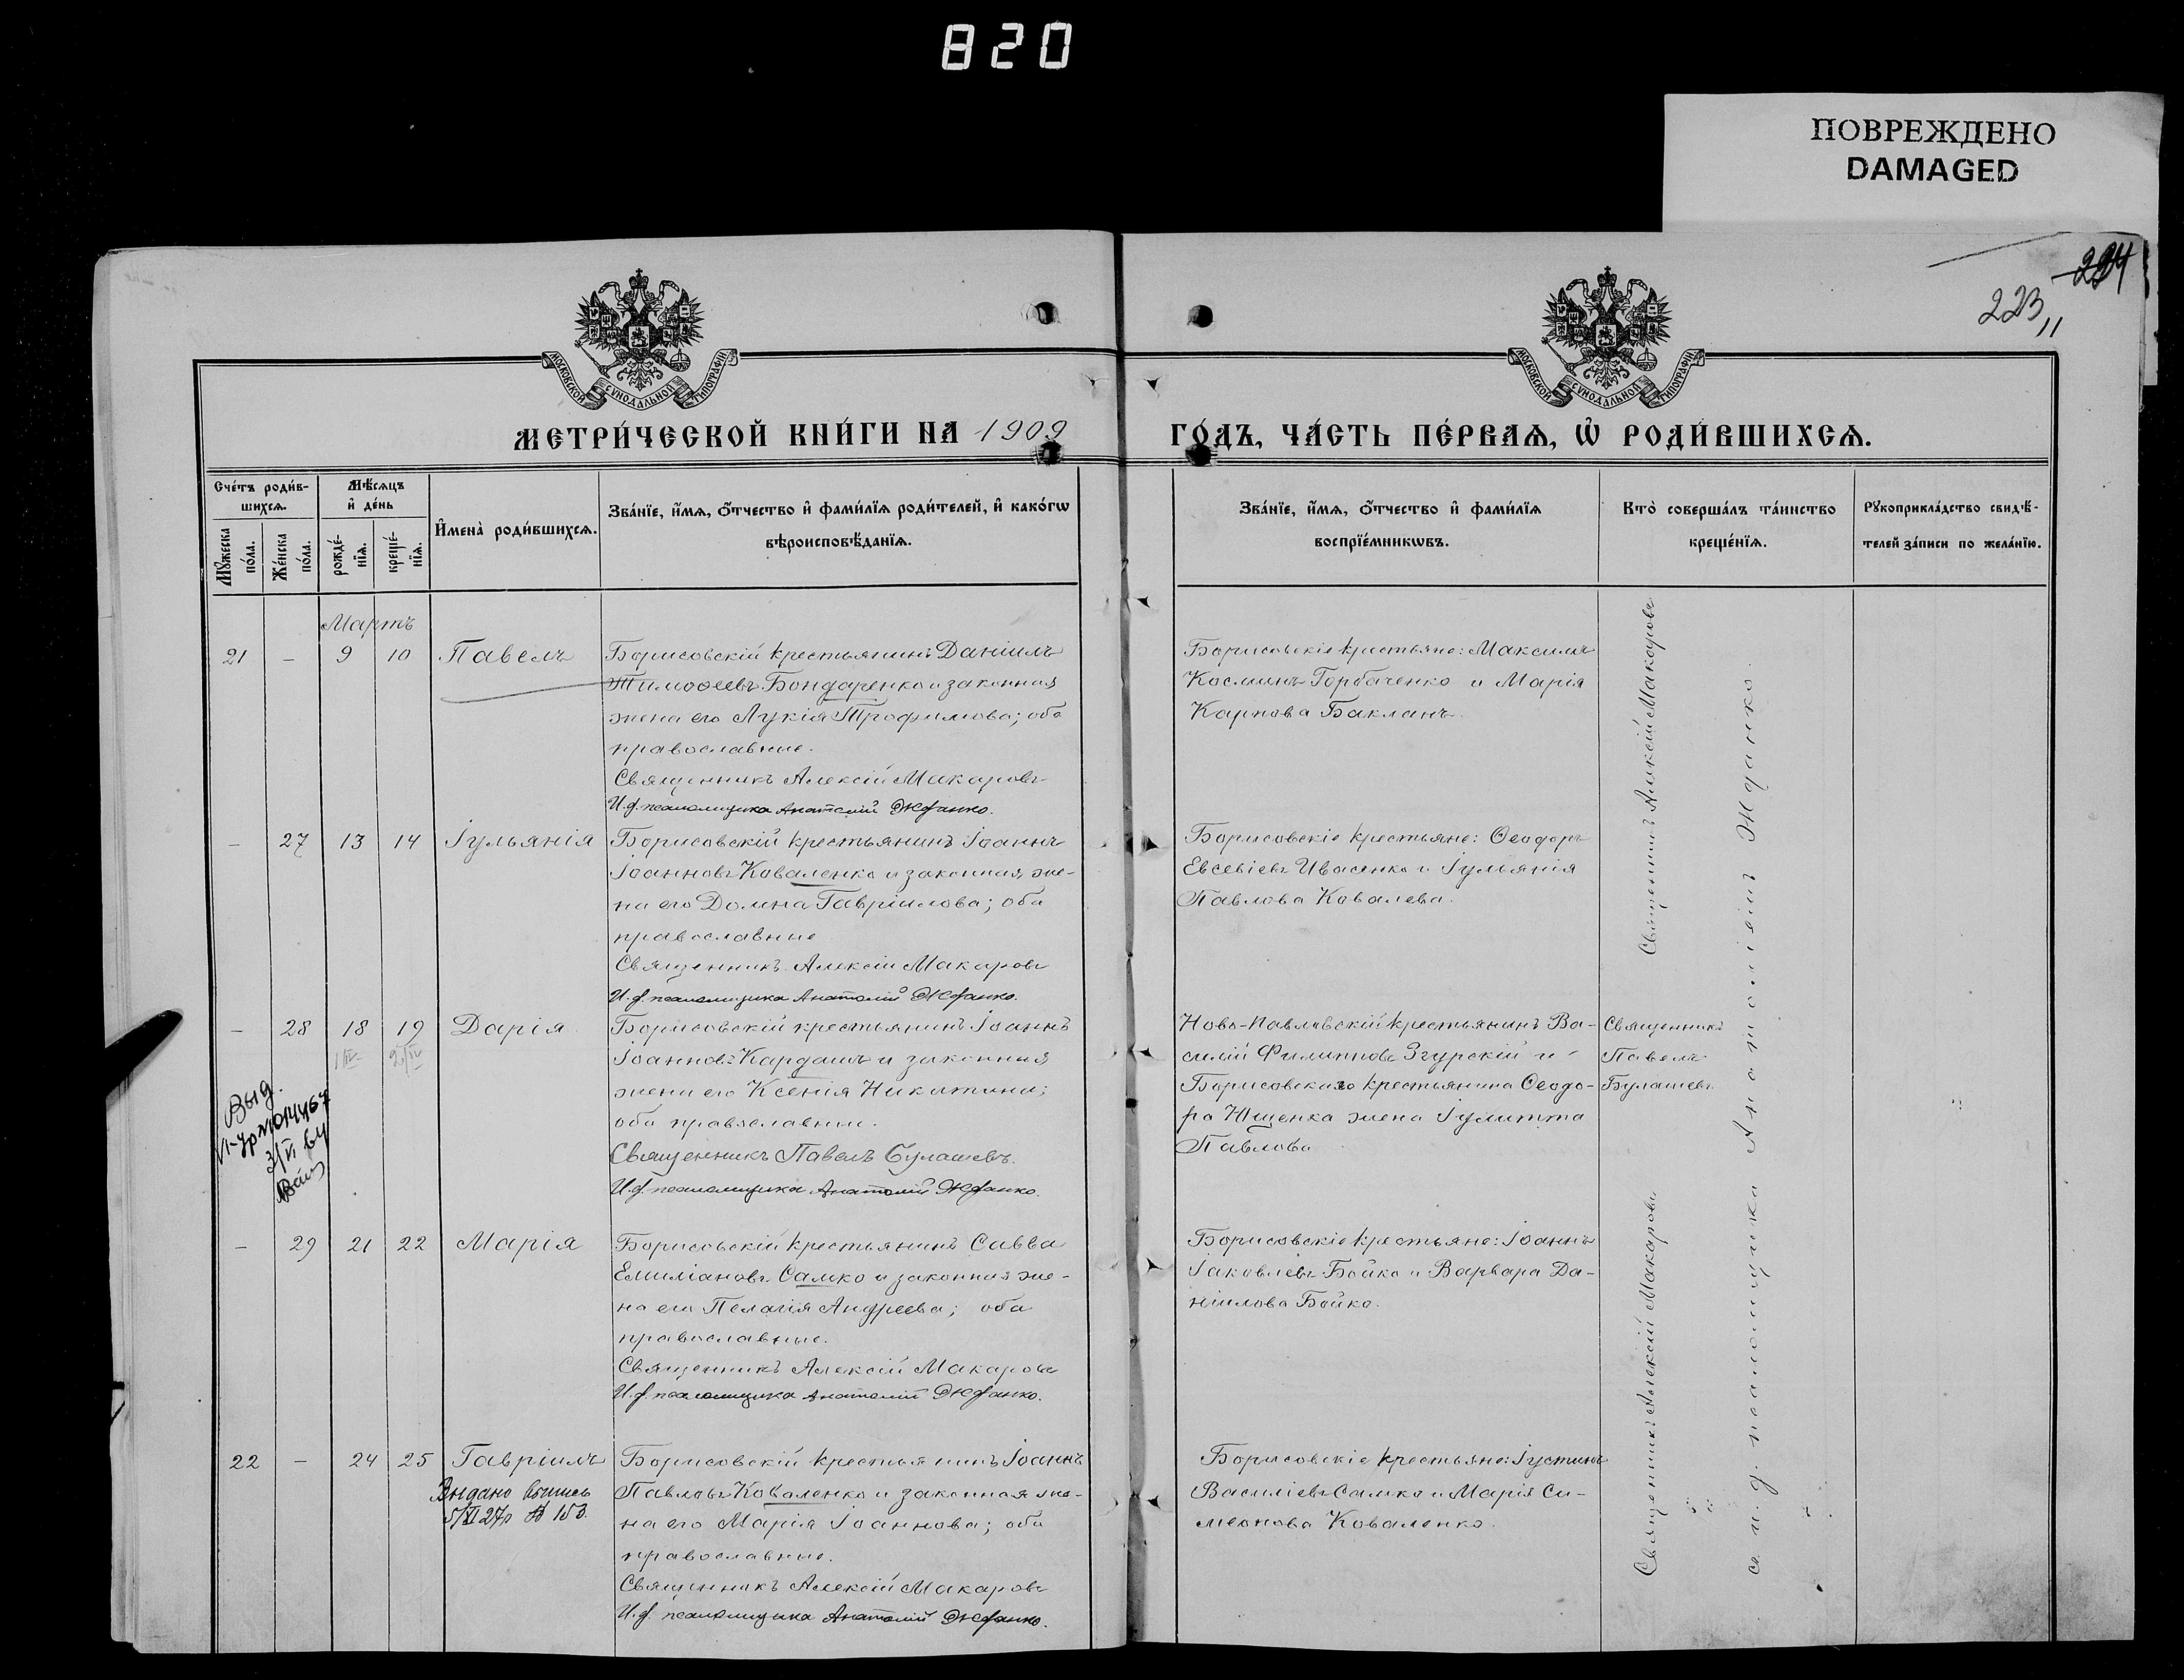 820
ПОВРЕЖДЕНО
DAMAGED
224
223
11
МОСКОВСКОЙ СѴНОДАЛЬНОЙ ТИПОГРАФІИ
МОСКОВСКОЙ СѴНОДАЛЬНОЙ ТИПОГРАФІИ
МЕТРИ́ЧЕСКОЙ КНИ́ГИ НА 1909
ГО́ДЪ, ЧА́СТЬ ПЕ́РВАѦ, Ѡ҆ РОДИ́ВШИХСѦ.
Сче́тъ роди́в-
шихсѧ.
Мꙋ́жеска
по́ла.
Же́нска
по́ла.
Мѣ́сѧцъ
и҆ де́нь
рожде́-
нїѧ.
креще́-
нїѧ.
И҆мена̀ роди́вшихсѧ.
Зва́нїе, и҆́мѧ, ѻ҆́тчество и҆ фами́лїѧ роди́телей, и҆ како́гѡ
вѣроисповѣ́данїѧ.
Зва́нїе, и҆́мѧ, ѻ҆́тчество и҆ фами́лїѧ
воспрїе́мникѡвъ.
Кто̀ соверша́лъ та́инство
креще́нїѧ.
Рꙋкоприкла́дство свидѣ́-
телей за́писи по жела́нїю.
Мартъ
21 - 9 10 Павелъ
Борисовскій крестьянинъ Даніилъ
Тимоѳеевъ Бондаренко и законная
жена его Лукія Трофимова; оба
православные.
Священникъ Алексій Макаровъ
И.д. псаломщика Анатолій Жданко.
Борисовскіе крестьяне: Максимъ
Косминъ Горбаченко и Марія
Карпова Бакланъ.
- 27 13 14 Іульянія
Борисовскій крестьянинъ Іоаннъ
Іоанновъ Коваленко и законная же-
на его Домна Гавріилова; оба
православные
Священникъ Алексій Макаровъ
И.д. псаломщика Анатолій Жданко.
Борисовскіе крестьяне: Ѳеодоръ
Евсевіевъ Ивасенко и Іульянія
Павлова Ковалева.
Священникъ Алексій Макаровъ
- 28 18 19 Дарія
1/IV 2/IV
Борисовскій крестьянинъ Іоаннъ
Іоанновъ Кардашъ и законная
жена его Ксенія Никитина;
оба православные.
Священникъ Павелъ Булашевъ.
И.д. псаломщика Анатолій Жданко.
Ново-Павловскій крестьянинъ Ва-
силій Филипповъ Згурскій и
Борисовскаго крестьянина Ѳеодо-
ра Ющенка жена Іулитта
Павлова
Священникъ
Павелъ
Булашевъ
Выд.
- 29 21 22 Марія
Борисовскій крестьянинъ Савва
Емиліановъ Самко и законная же-
на его Пелагія Андреева; оба
православные.
Священникъ Алексій Макаровъ
И.д. псаломщика Анатолій Жданко.
Борисовскіе крестьяне: Іоаннъ
Іаковлевъ Бойко и Варвара Да-
ніилова Бойко.
22 - 24 25 Гавріилъ
Выдано выпись
5/XI 27г № 153.
Борисовскій крестьянинъ Іоаннъ
Павловъ Коваленко и законная же-
на его Марія Іоаннова; оба
православные.
Священникъ Алексій Макаровъ
И.д. псаломщика Анатолій Жданко.
Борисовскіе крестьяне: Іустинъ
Василіевъ Самко и Марія Си-
меонова Коваленко.
Священникъ Алексій Макаровъ
съ и. д. псаломщика Анатоліемъ Жданко.